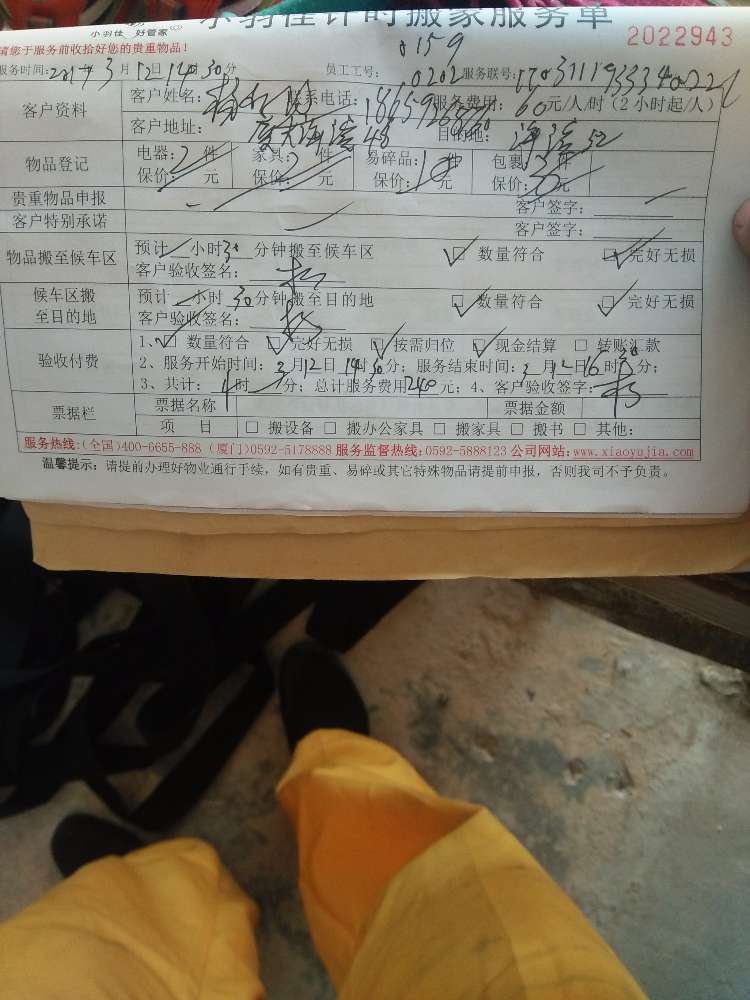 小羽佳 好管家
小羽佳计时搬家服务单
2022943
请您于服务前收拾好您的贵重物品！
0159
服务时间: 2017年3月12日14时30分 员工工号: 0202 服务联号:
客户资料 客户姓名: 联系电话: 服务费用: 60元/人/时（2小时起/人）
客户地址: 48 目的地: 52
物品登记 电器: 2件 家具: 2件 易碎品: 1件 包裹: 件
保价: 元 保价: 元 保价: 元 保价: 元
贵重物品申报 客户签字:
客户特别承诺 客户签字:
物品搬至候车区 预计 小时30分钟搬至候车区 ☑ 数量符合 ☑ 完好无损
客户验收签名:
候车区搬至目的地 预计 小时30分钟搬至目的地 ☑ 数量符合 ☑ 完好无损
客户验收签名:
验收付费 1、☑ 数量符合 ☑ 完好无损 ☑ 按需归位 ☑ 现金结算 □ 转账汇款
2、服务开始时间: 3月12日14时30分; 服务结束时间: 3月12日16时30分;
3、共计: 4时 分; 总计服务费用240元; 4、客户验收签字:
票据栏 票据名称 票据金额
项 目 □ 搬设备 □ 搬办公家具 □ 搬家具 □ 搬书 □ 其他:
服务热线:(全国)400-6655-888 (厦门)0592-5178888 服务监督热线:0592-5888123 公司网站:www.xiaoyujia.com
温馨提示: 请提前办理好物业通行手续，如有贵重、易碎或其它特殊物品请提前申报，否则我司不予负责。